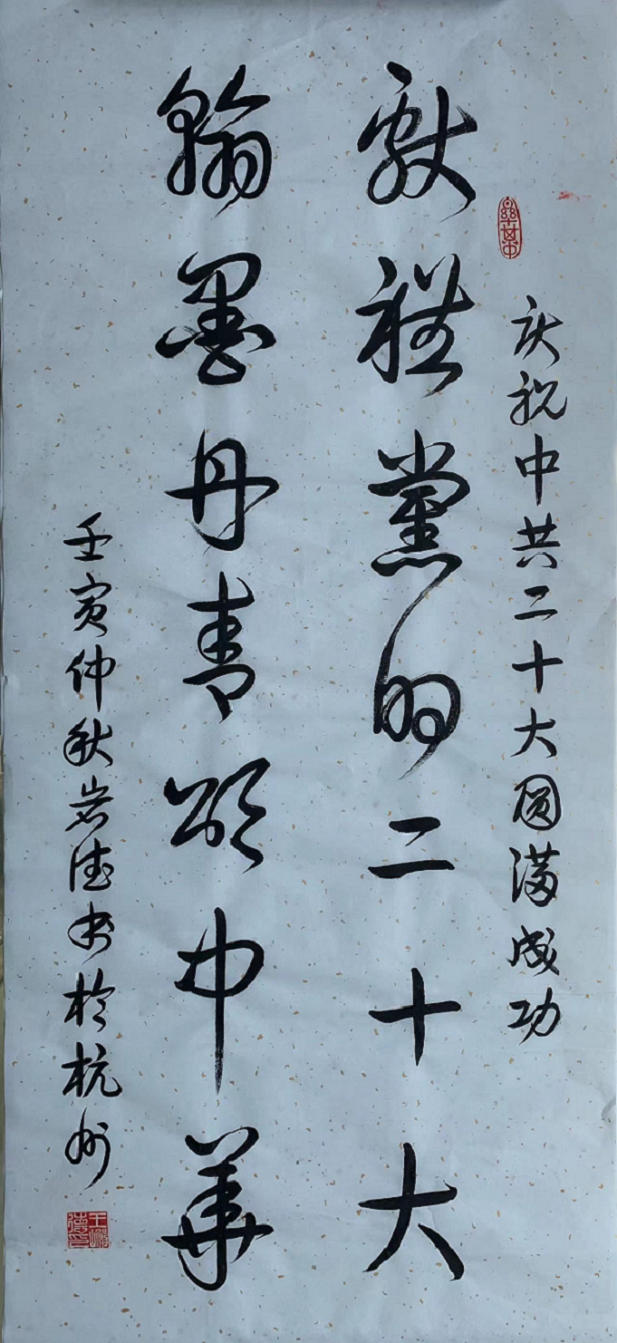 庆祝中共二十大圆满成功
献礼党的二十大
翰墨丹青颂中华
壬寅仲秋岩德书於杭州